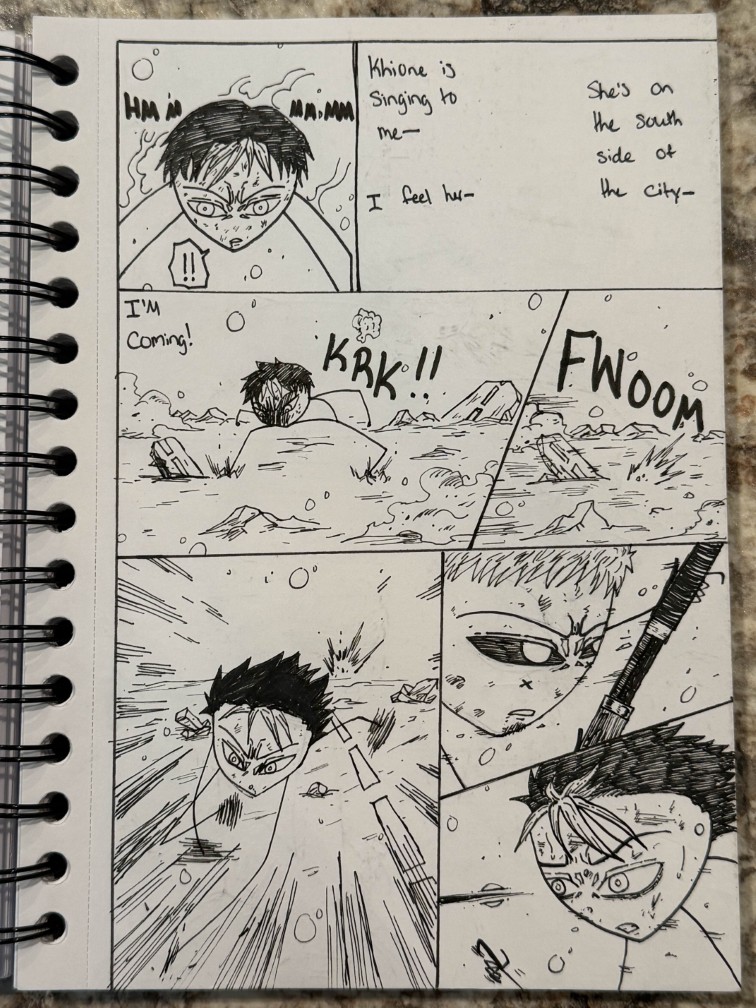 HM M
MM.MM
!!
Khione is
Singing to
me—
I feel her—
She's on
the South
side of
the City—
I'M
Coming!
KRK!!
FWOOM